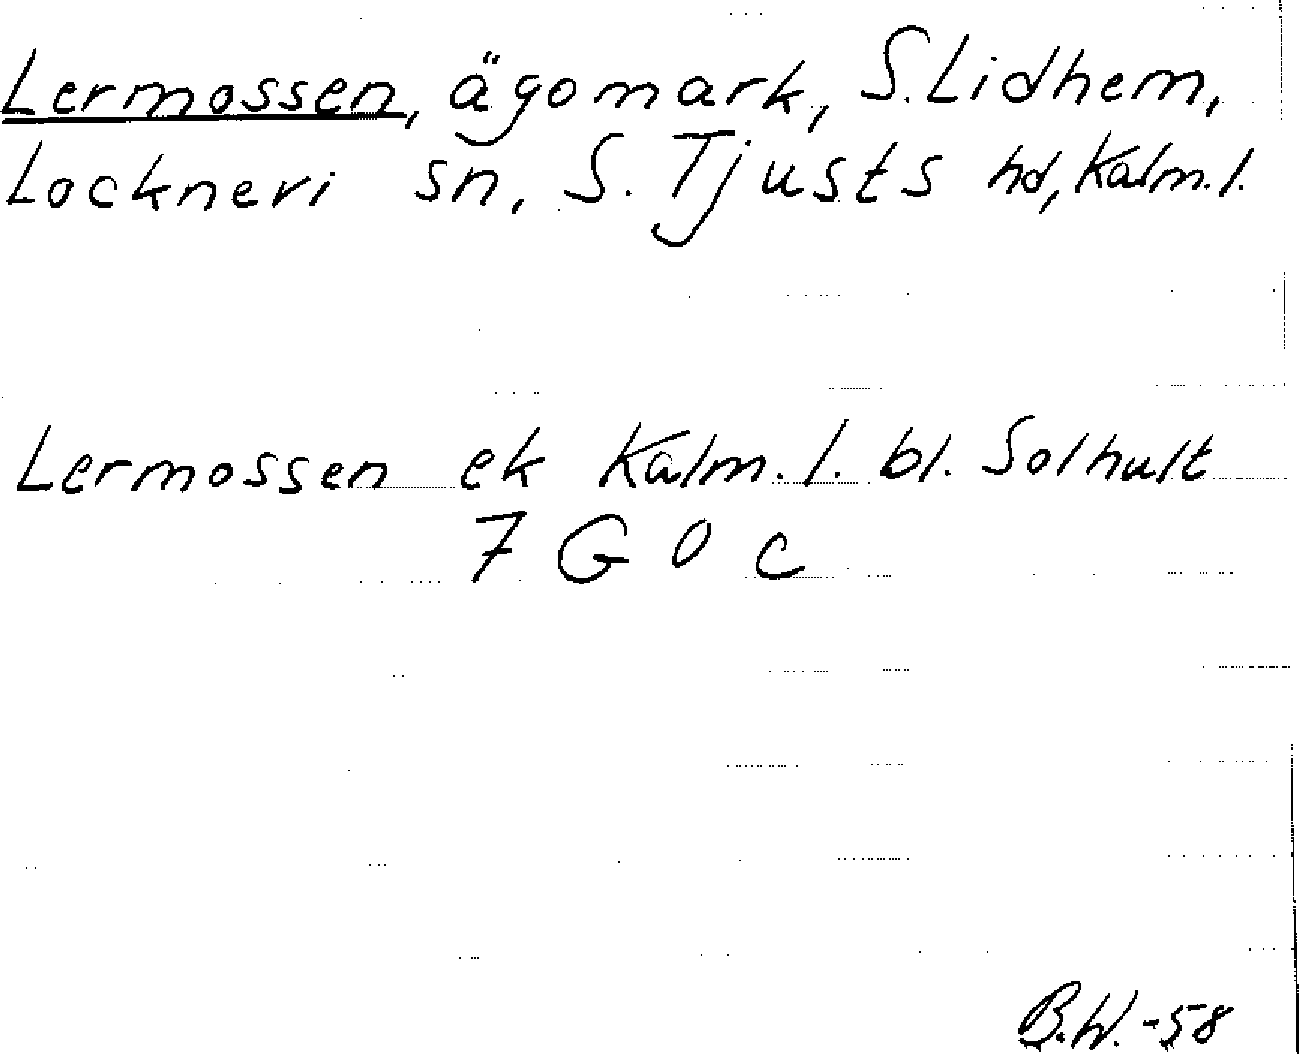 Lermossen, ägomark, S. Lidhem,
Lockneri sn, S. Tjusts hd, Kalm. l.
Lermossen ek Kalm. l. bl. Solhult
7 G 0 c
B.W. -58